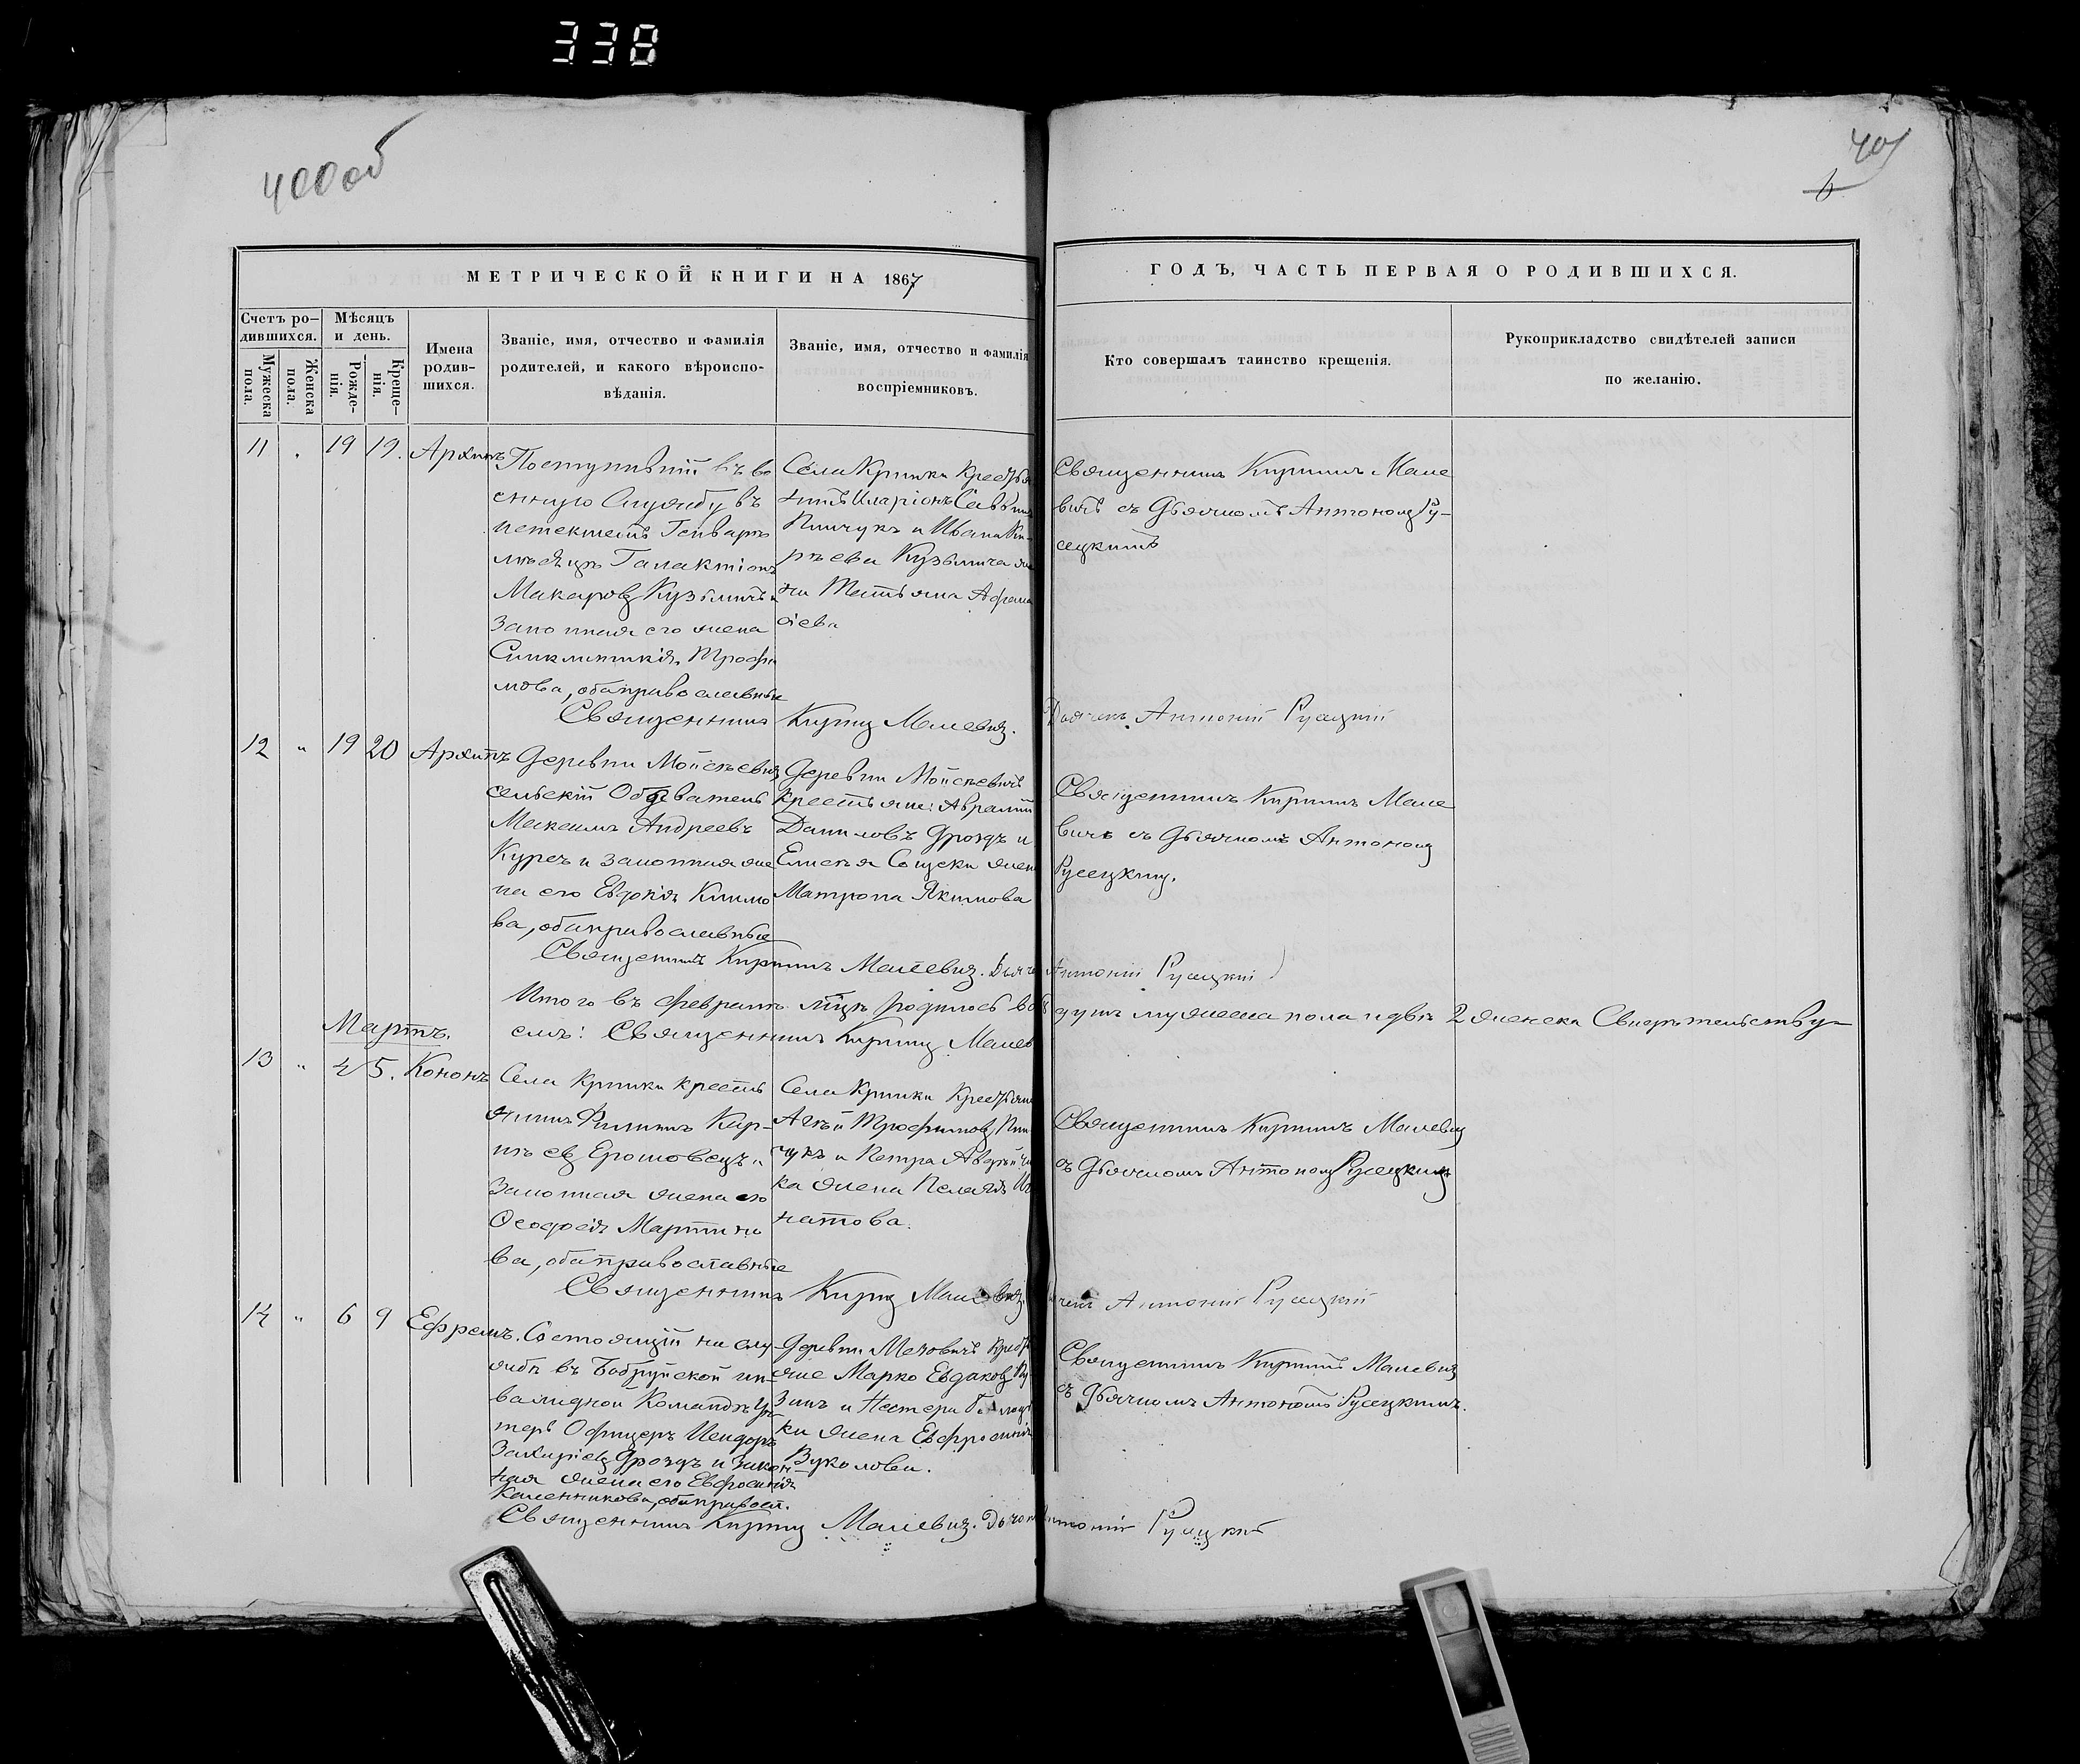 338
400об
401
6
МЕТРИЧЕСКОЙ КНИГИ НА 1867
ГОДЪ, ЧАСТЬ ПЕРВАЯ О РОДИВШИХСЯ.
Счетъ ро-
дившихся.
Мужеска
пола.
Женска
пола.
Мѣсяцъ
и день.
Рожде-
нія.
Креще-
нія.
Имена
родив-
шихся.
Званіе, имя, отчество и фамилія
родителей, и какого вѣроиспо-
вѣданія.
Званіе, имя, отчество и фамилія
воспріемниковъ.
Кто совершалъ таинство крещенія.
Рукоприкладство свидѣтелей записи
по желанію.
11 " 19 19. Архипъ
Поступившій въ во
енную Службу въ
истекшемъ Генварѣ
мѣсяцѣ Галактіонъ
Макаровъ Кузьмичъ и
законная его жена
Синклитикія Трофи
мова, оба православные
Села Кривки Кресть
Иларіонъ Савинъ
Пинчукъ и Ивана
Кузьмича же
на Татьяна Афана
сіева
Священникъ Кириллъ Мале
вичъ съ Дьячкомъ Антономъ Ру-
сецкимъ
Священникъ Кириллъ Малевичъ. Дьячекъ Антоній Русецкій
12 " 19 20 Архипъ
Деревни Мойсѣевичъ
сельскій Обыватель
Максимъ Андреевъ
Курсъ и законная же
на его Евдокія Климо
ва, оба православные
Деревни Мойсѣевичъ
крестьяне: Аврамій
Даниловъ Дроздъ и
Елисѣя жена
Матрона Якимова
Священникъ Кириллъ Мале
вичъ съ Дьячкомъ Антономъ
Русецкимъ.
Священникъ Кириллъ Малевичъ. Дьячекъ Антоній Русецкій
Итого въ февралѣ мцѣ родилось
душъ мужеска пола и двѣ 2 женска Свидѣтельству-
емъ: Священникъ Кириллъ Малев
Мартъ.
13 " 4 5. Кононъ
Села Кривки кресть
янинъ Филиппъ Кар-
пѣевъ Ерошовецъ и
Законная жена его
Ѳеодосія Мартино
ва, оба православные
Села Кривки Крестьяне
Трофимовъ Пин
чукъ и Петра
ка жена Пелагія Иг
натова.
Священникъ Кириллъ Малевичъ
съ Дьячкомъ Антономъ Русецкимъ
Священникъ Кириллъ Малевичъ. Антоній Русецкій
14 " 6 9 Ефремъ.
Состоящій на слу-
жбѣ въ Бобруйской ин-
валидной Командѣ Ун
теръ Офицеръ Исидоръ
Захаріевъ Дроздъ и Закон-
ная жена его Евфросинія
Калинникова, оба правосл.
Деревни Мезовичъ Кресть
яне Марко Евдаковъ Ку
зичъ и Нестера
ки жена Евфросинія
Вуколова.
Священникъ Кириллъ Малевичъ
съ Дьячкомъ Антономъ Русецкимъ.
Священникъ Кириллъ Малевичъ. Дьячекъ Антоній Русецкій